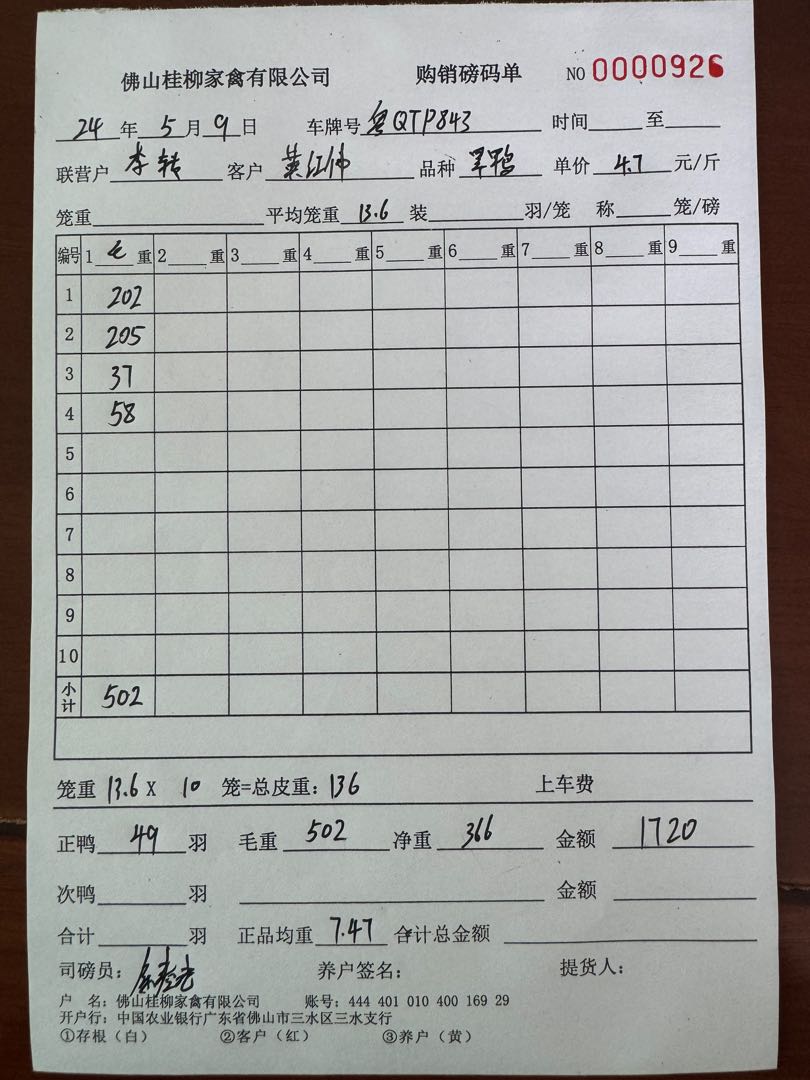 佛山桂柳家禽有限公司 购销磅码单 NO 0000926
24 年 5 月 9 日 车牌号 粤QTP843 时间 至
联营户 李转 客户 黄红伟 品种 单价 4.7 元/斤
笼重 平均笼重 13.6 装 羽/笼 称 笼/磅
编号 1 毛 重 2 重 3 重 4 重 5 重 6 重 7 重 8 重 9 重
1 202
2 205
3 37
4 58
5
6
7
8
9
10
小计 502
笼重 13.6 X 10 笼=总皮重: 136 上车费
正鸭 49 羽 毛重 502 净重 366 金额 1720
次鸭 羽 金额
合计 羽 正品均重 7.47 合计总金额
司磅员: 养户签名: 提货人:
户 名: 佛山桂柳家禽有限公司 账号: 444 401 010 400 169 29
开户行: 中国农业银行广东省佛山市三水区三水支行
①存根(白) ②客户(红) ③养户(黄)